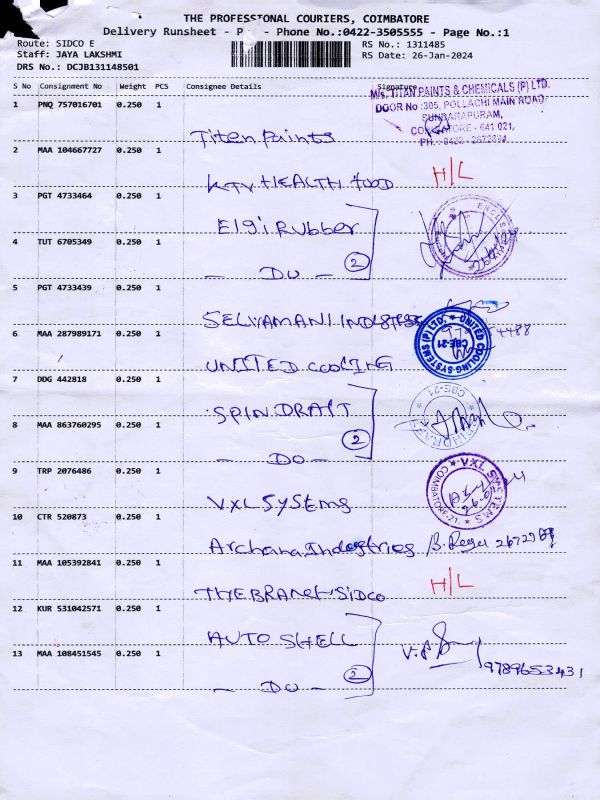 THE PROFESSIONAL COURIERS, COIMBATORE
Delivery Runsheet - P - Phone No.:0422-3505555 - Page No.:1
Route: SIDCO E
RS No.: 1311485
Staff: JAYA LAKSHMI
RS Date: 26-Jan-2024
DRS No.: DCJB131148501
S No Consignment No Weight PCS Consignee Details Signature
M/s. TITAN PAINTS & CHEMICALS (P) LTD.
DOOR No :305, POLLACHI MAIN ROAD
SUNDARAPURAM,
COIMBATORE - 641 021,
PH.: 0422 -
1 PNQ 757016701 0.250 1 Titen Paints
2 MAA 104667727 0.250 1 KTV HEALTH FOOD H/L
3 PGT 4733464 0.250 1 Elgi Rubber
4 TUT 6705349 0.250 1 - DO - 2
5 PGT 4733439 0.250 1 SELVAMANI
6 MAA 287989171 0.250 1 UNITED COOLING
UNITED COOLING SYSTEMS (P) LTD. CBE-21
7 DDG 442818 0.250 1 SPINDRAFT
8 MAA 863760295 0.250 1 - DO - 2
CBE-21
9 TRP 2076486 0.250 1 VXL SYSTEMS
VXL SYSTEMS COIMBATORE-21
10 CTR 520873 0.250 1 Archana Industries
11 MAA 105392841 0.250 1 THE BRANCH SIDCO H/L
12 KUR 531042571 0.250 1 AUTO SHELL
13 MAA 108451545 0.250 1 - DO - 2
9789653431